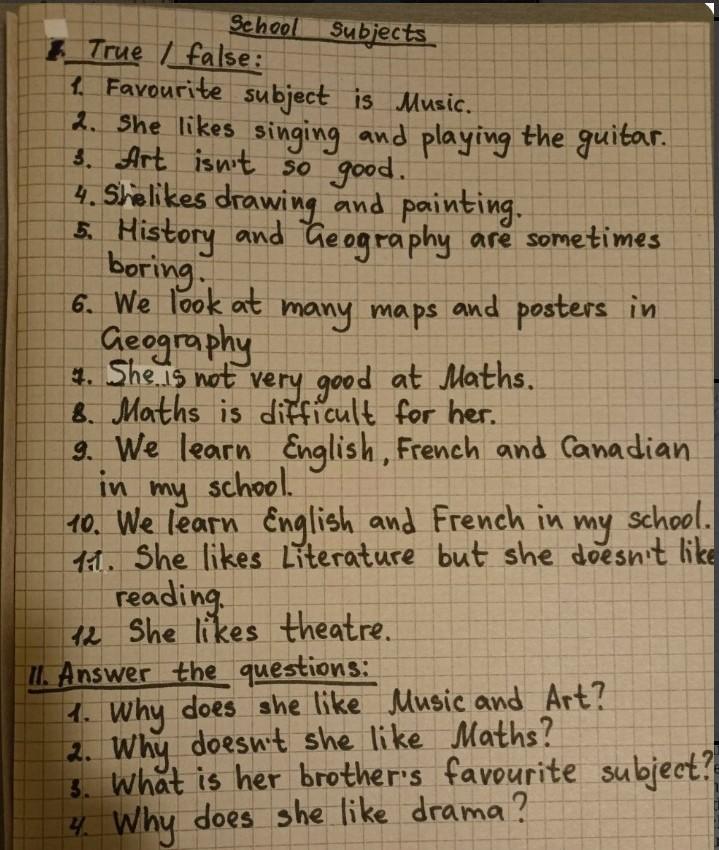 School Subjects
I. True / false:
1. Favourite subject is Music.
2. She likes singing and playing the guitar.
3. Art isn't so good.
4. She likes drawing and painting.
5. History and Geography are sometimes
boring.
6. We look at many maps and posters in
Geography
7. She is not very good at Maths.
8. Maths is difficult for her.
9. We learn English, French and Canadian
in my school.
10. We learn English and French in my school.
11. She likes Literature but she doesn't like
reading.
12 She likes theatre.
II. Answer the questions:
1. Why does she like Music and Art?
2. Why doesn't she like Maths?
3. What is her brother's favourite subject?
4. Why does she like drama?